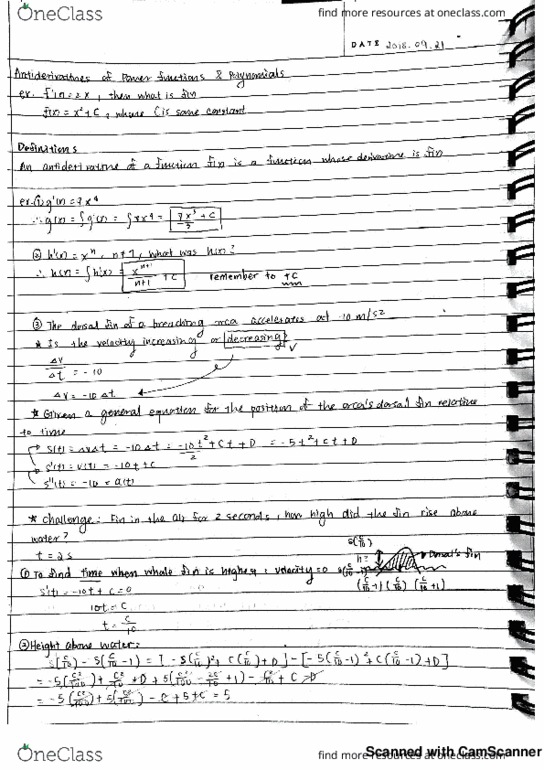 OneClass
find more resources at oneclass.com
DATE 2018.09.21
Antiderivatives of Power functions & Polynomials
ex. f'(x) = 2x, then what is f(x)
f(x) = x² + C, where C is some constant
Definitions
An antiderivative of a function f(x) is a function whose derivative is f(x)
ex. ① g'(x) = 7x⁴
∴ g(x) = ∫g'(x) = ∫7x⁴ = 7x⁵/5 + C
② h'(x) = xⁿ, n≠1, what was h(x)?
∴ h(x) = ∫h'(x) = xⁿ⁺¹/n+1 + C remember to +C
③ The dorsal fin of a breaching orca accelerates at -10 m/s2
* Is the velocity increasing or decreasing?
Δv/Δt = -10
Δv = -10 Δt
* Given a general equation for the position of the orca's dorsal fin relative
to time
s(t) = Δv Δt = -10 Δt = -10t²/2 + Ct + D = -5t² + Ct + D
s'(t) = v(t) = -10t + C
s''(t) = -10 = a(t)
* Challenge: Fin in the air for 2 seconds, how high did the fin rise above
water?
t = 2s
s(C/10)
h= Dorsal's fin
① To find time when whale fin is highest: velocity = 0
(C/10 -1) (C/10) (C/10 +1)
s'(t) = -10t + C = 0
10t = C
t = C/10
② Height above water:
s(C/10) - s(C/10 -1) = [-5(C/10)² + C(C/10) + D] - [-5(C/10 -1)² + C(C/10 -1) + D]
= -5(C²/100) + C²/10 + D + 5(C²/100 - 2C/10 + 1) - C²/10 + C - D
= -5(C²/100) + 5(C²/100) - C + 5 + C = 5
OneClass
find more resources at oneclass.com
Scanned with CamScanner